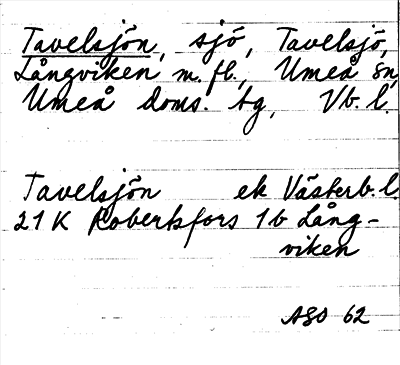 Tavelsjön, sjö, Tavelsjö,
Långviken m. fl., Umeå sn,
Umeå doms. tg, Vb. l.
Tavelsjön ek Västerb. l.
21 K Robertsfors 1b Lång-
viken
ASO 62